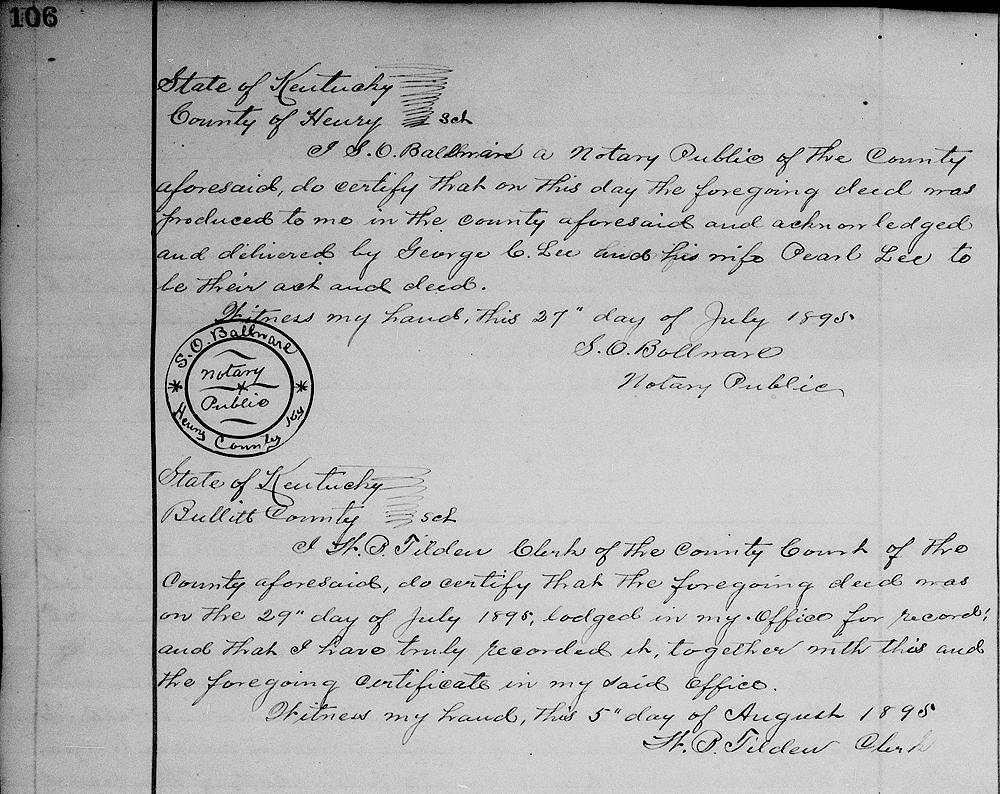 106
State of Kentucky
County of Henry Sct
I S.O. Ballware a Notary Public of the County
aforesaid, do certify that on this day the foregoing deed was
produced to me in the county aforesaid and acknowledged
and delivered by George C. Lee and his wife Pearl Lee to
be their act and deed.
Witness my hand, this 27" day of July 1895
S. O. Ballware
Notary Public
S. O. Ballware
Notary
Public
Henry County Ky
State of Kentucky
Bullitt County Sct
I W. P. Tilden Clerk of the County Court of the
County aforesaid, do certify that the foregoing deed was
on the 29" day of July 1895, lodged in my Office for record,
and that I have truly recorded it, together with this and
the foregoing Certificate in my said Office.
Witness my hand, this 5" day of August 1895
W. P. Tilden Clerk